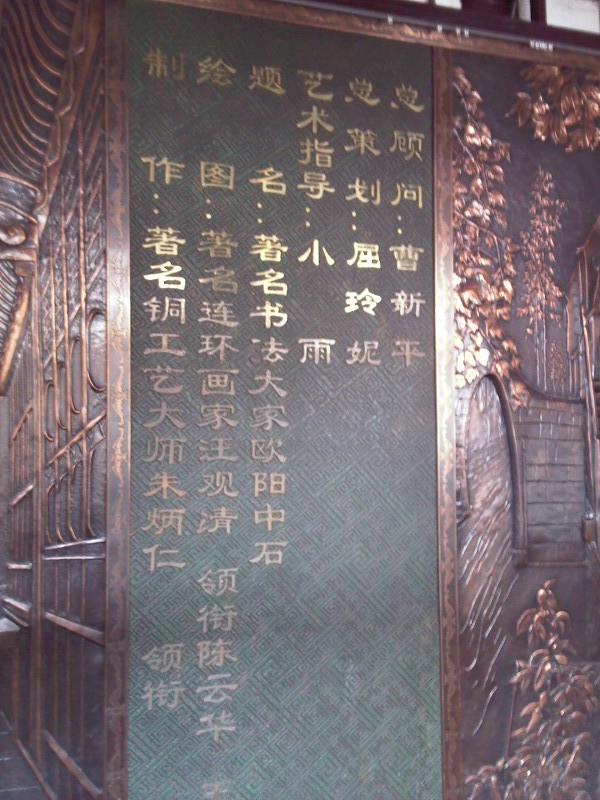 总顾问：曹新平
总策划：屈玲妮
艺术指导：小雨
题名：著名书法大家欧阳中石
绘图：著名连环画家汪观清 领衔陈云华
制作：著名铜工艺大师朱炳仁 领衔